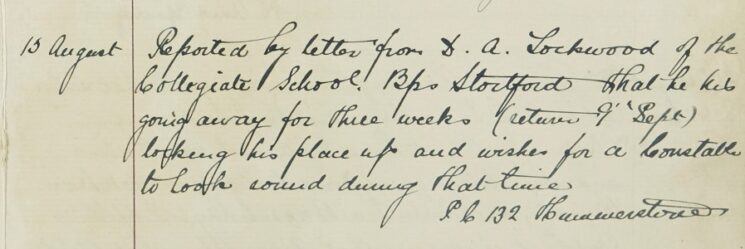 15 August Reported by letter from D. A. Lockwood of the
Collegiate School. Bps Stortford that he is
going away for three weeks (return 9th Sept)
locking his place up and wishes for a Constable
to look round during that time
P C 132 Hummerstone